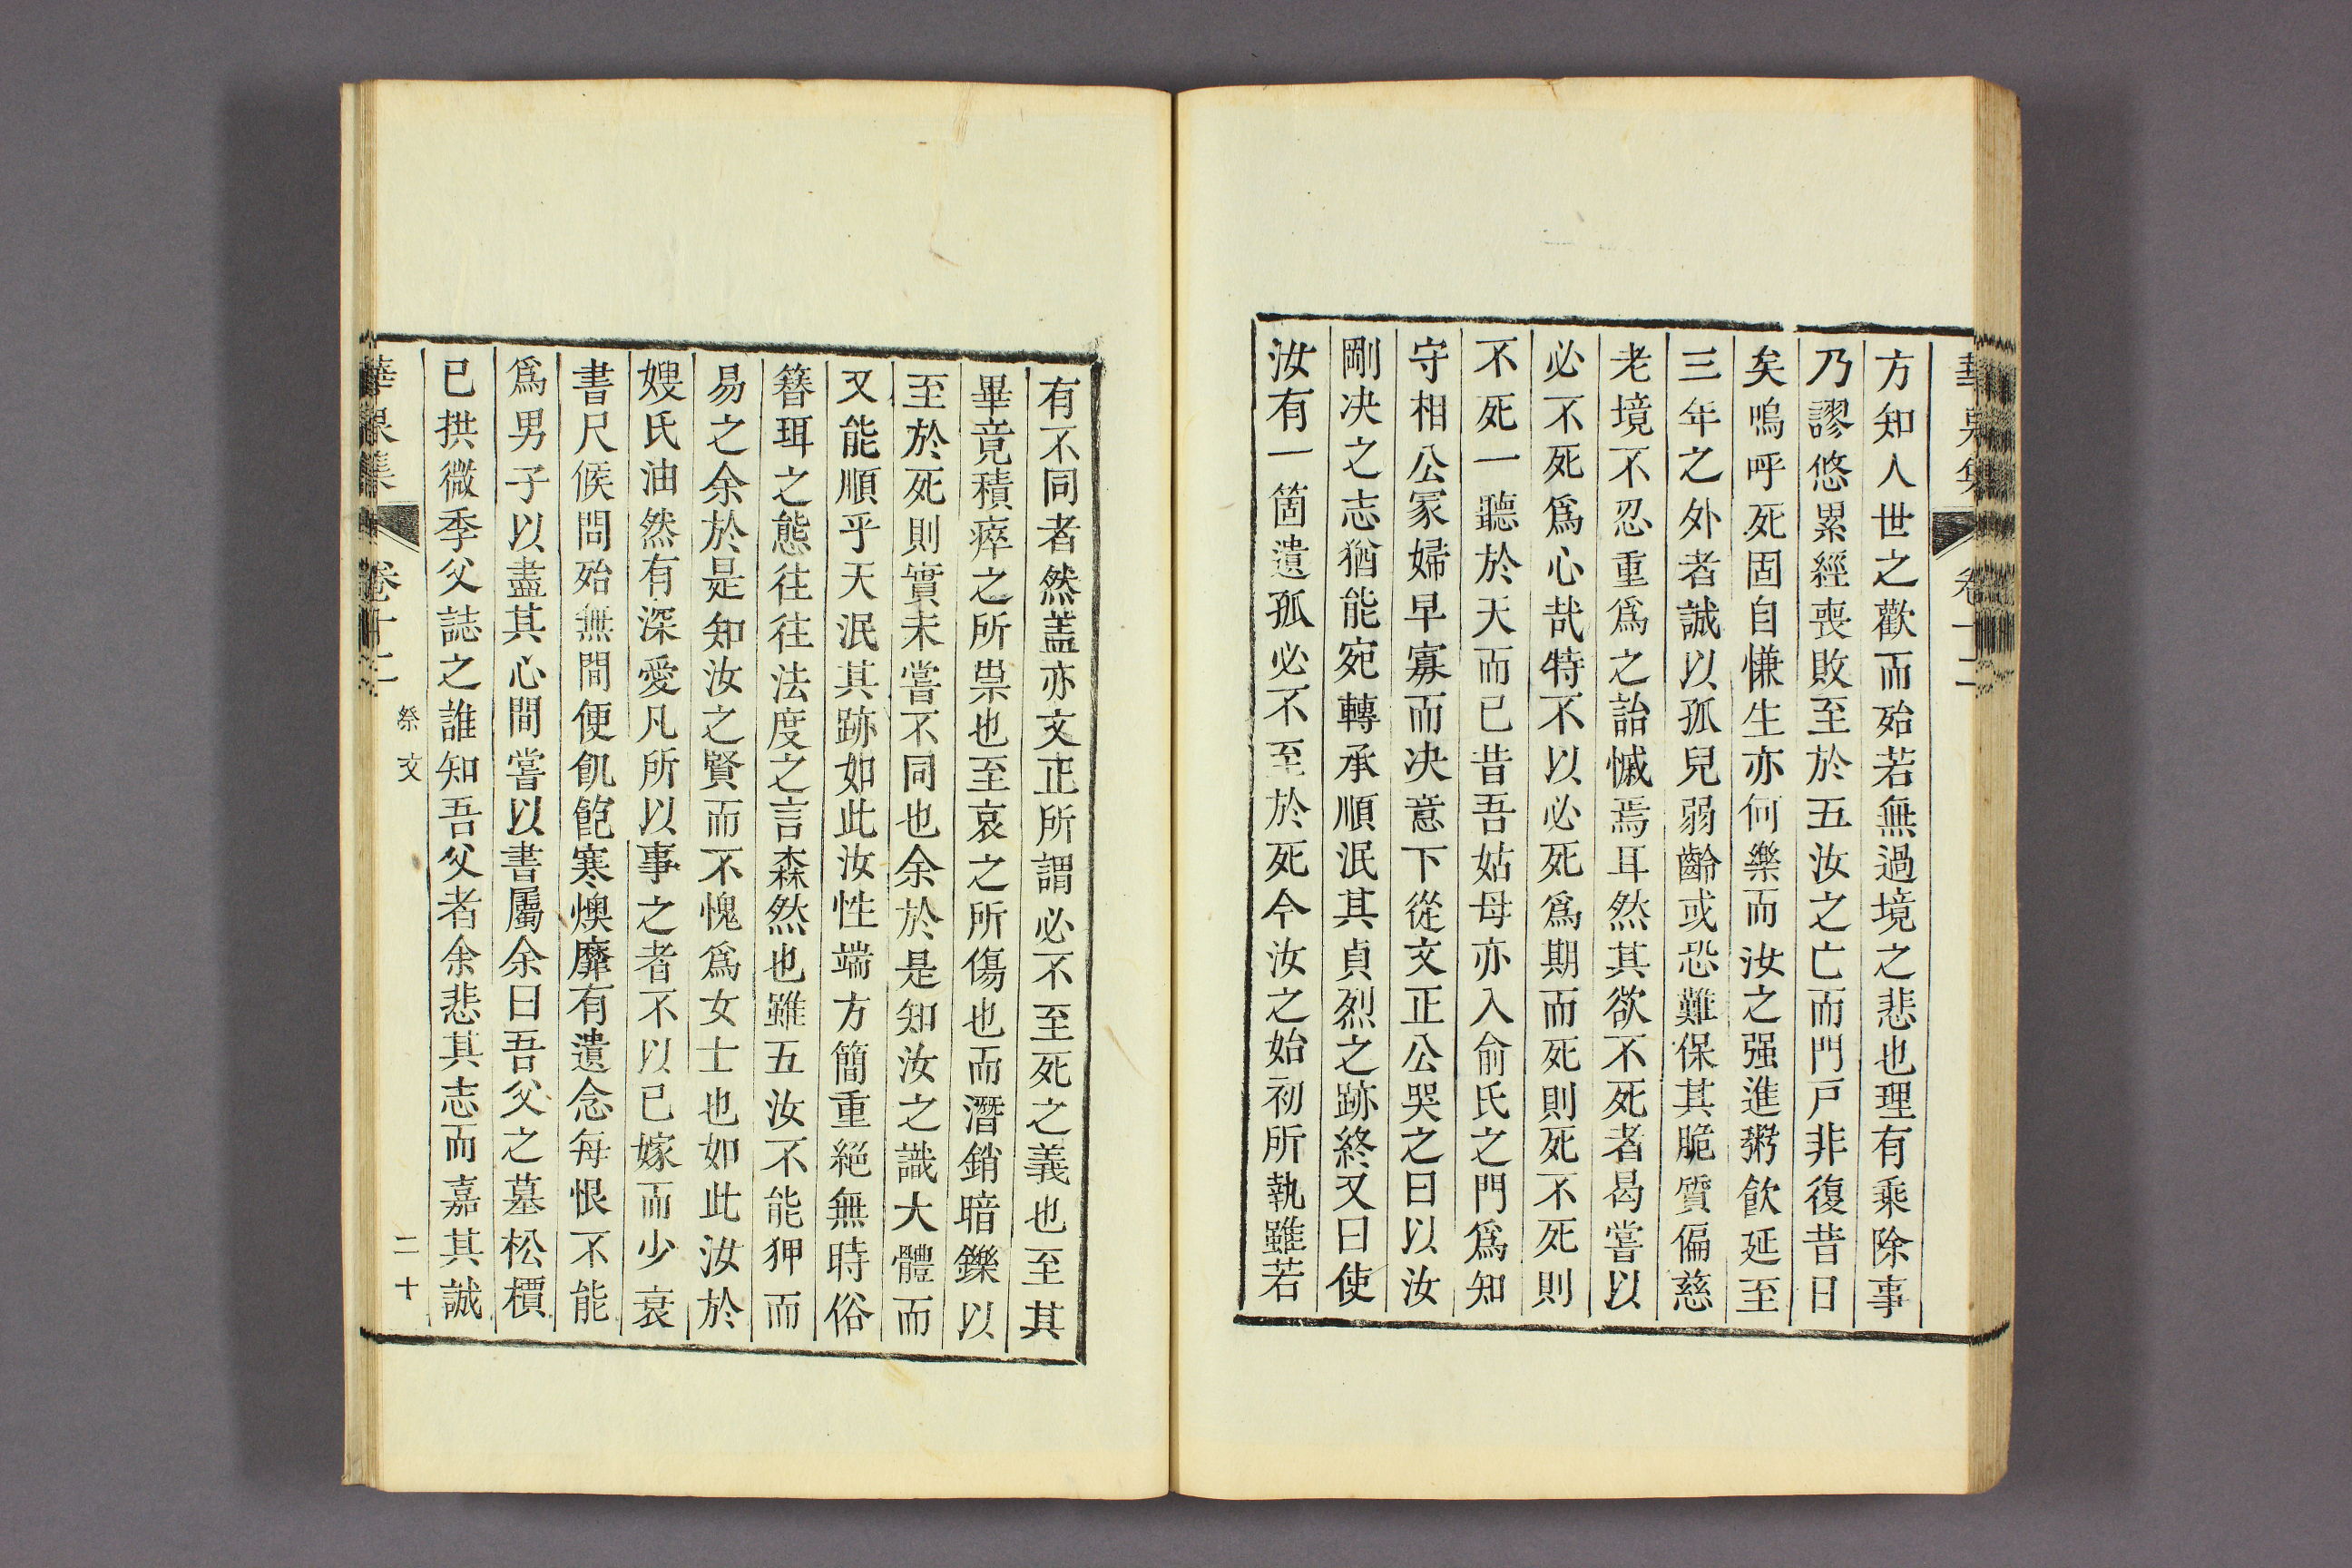 方知人世之歡而殆若無過境之悲也理有乘除事
乃謬悠累經喪敗至於五汝之亡而門戸非復昔日
矣嗚呼死固自慊生亦何樂而汝之强進粥飮延至
三年之外者誠以孤兒弱齡或恐難保其脆質偏慈
老境不忍重爲之詒慽焉耳然其欲不死者曷嘗以
必不死爲心哉特不以必死爲期而死則死不死則
不死一聽於天而已昔吾姑母亦入俞氏之門爲知
守相公冢婦早寡而决意下從文正公哭之曰以汝
剛决之志猶能宛轉承順泯其貞烈之跡終又曰使
汝有一箇遺孤必不至於死今汝之始初所執雖若
有不同者然蓋亦文正所謂必不至死之義也至其
畢竟積瘁之所祟也至哀之所傷也而潛銷暗鑠以
至於死則實未嘗不同也余於是知汝之識大體而
又能順乎天泯其跡如此汝性端方簡重絕無時俗
簪珥之態往往法度之言森然也雖五汝不能狎而
易之余於是知汝之賢而不愧爲女士也如此汝於
嫂氏油然有深愛凡所以事之者不以已嫁而少衰
書尺候問殆無間便飢飽寒燠靡有遺念每恨不能
爲男子以盡其心間嘗以書屬余曰吾父之墓松檟
已拱微季父誌之誰知吾父者余悲其志而嘉其誠
華泉集 卷十二 祭文 二十